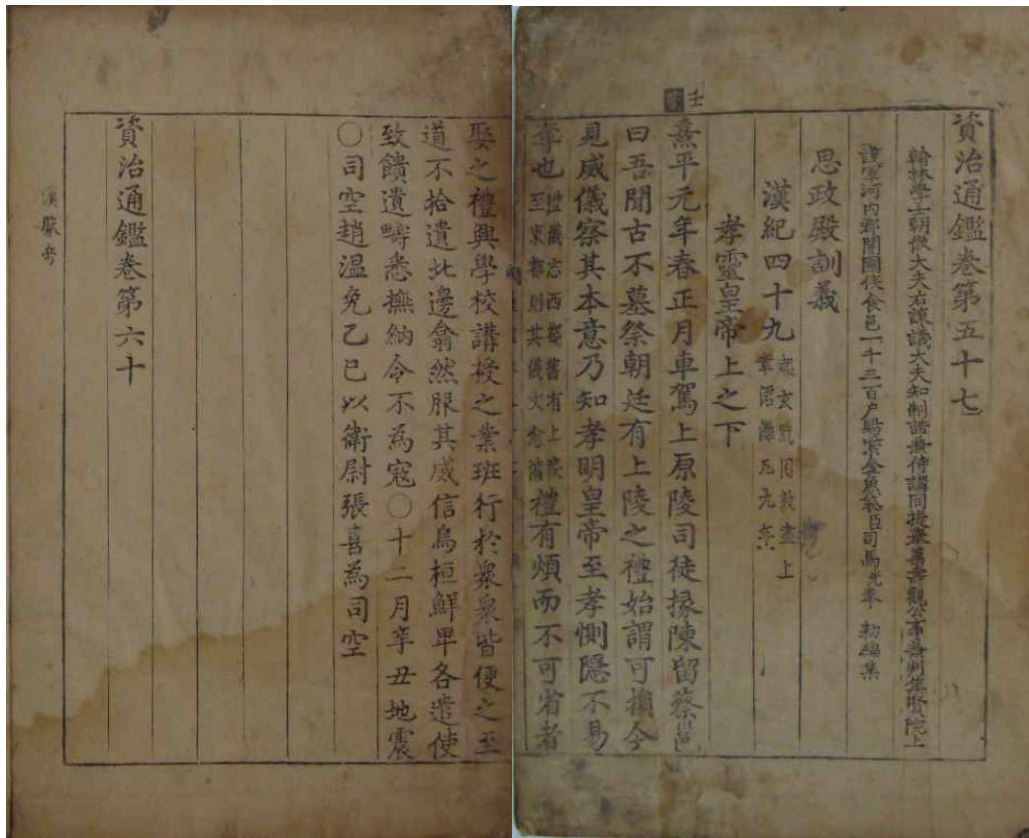 資治通鑑卷第五十七
翰林學士朝散大夫右諫議大夫知制誥兼侍講同提舉萬壽觀公事兼判集賢院上
護軍河內郡開國侯食邑一千三百户賜紫金魚袋臣司馬光奉 勑編集
思政殿訓義
漢紀四十九起玄黓困敦盡上章涒灘凡九年
孝靈皇帝上之下
熹平元年春正月車駕上原陵司徒掾陳留蔡邕
曰吾聞古不墓祭朝廷有上陵之禮始謂可損今
見威儀察其本意乃知孝明皇帝至孝惻隱不易
奪也儀志西都舊有上陵至東都則其儀文愈備禮有煩而不可省者
娶之禮興學校講授之業班行於衆衆皆便之至
道不拾遺北邊翕然服其威信烏桓鮮卑各遣使
致饋遺疇悉撫納令不為寇○十二月辛丑地震
○司空趙温免乙巳以衛尉張喜為司空
資治通鑑卷第六十